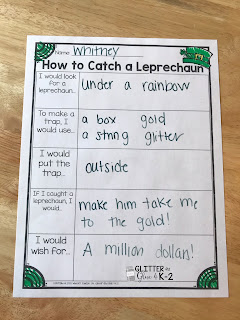 Name Whitney
How to Catch a Leprechaun
I would look
for a
leprechaun...
under a rainbow
To make a
trap, I would
use...
a box gold
a string glitter
I would
put the
trap...
outside
If I caught a
leprechaun, I
would...
make him take me
to the gold!
I would
wish for...
A million dollars!
GLITTER IN
Glue & K-2